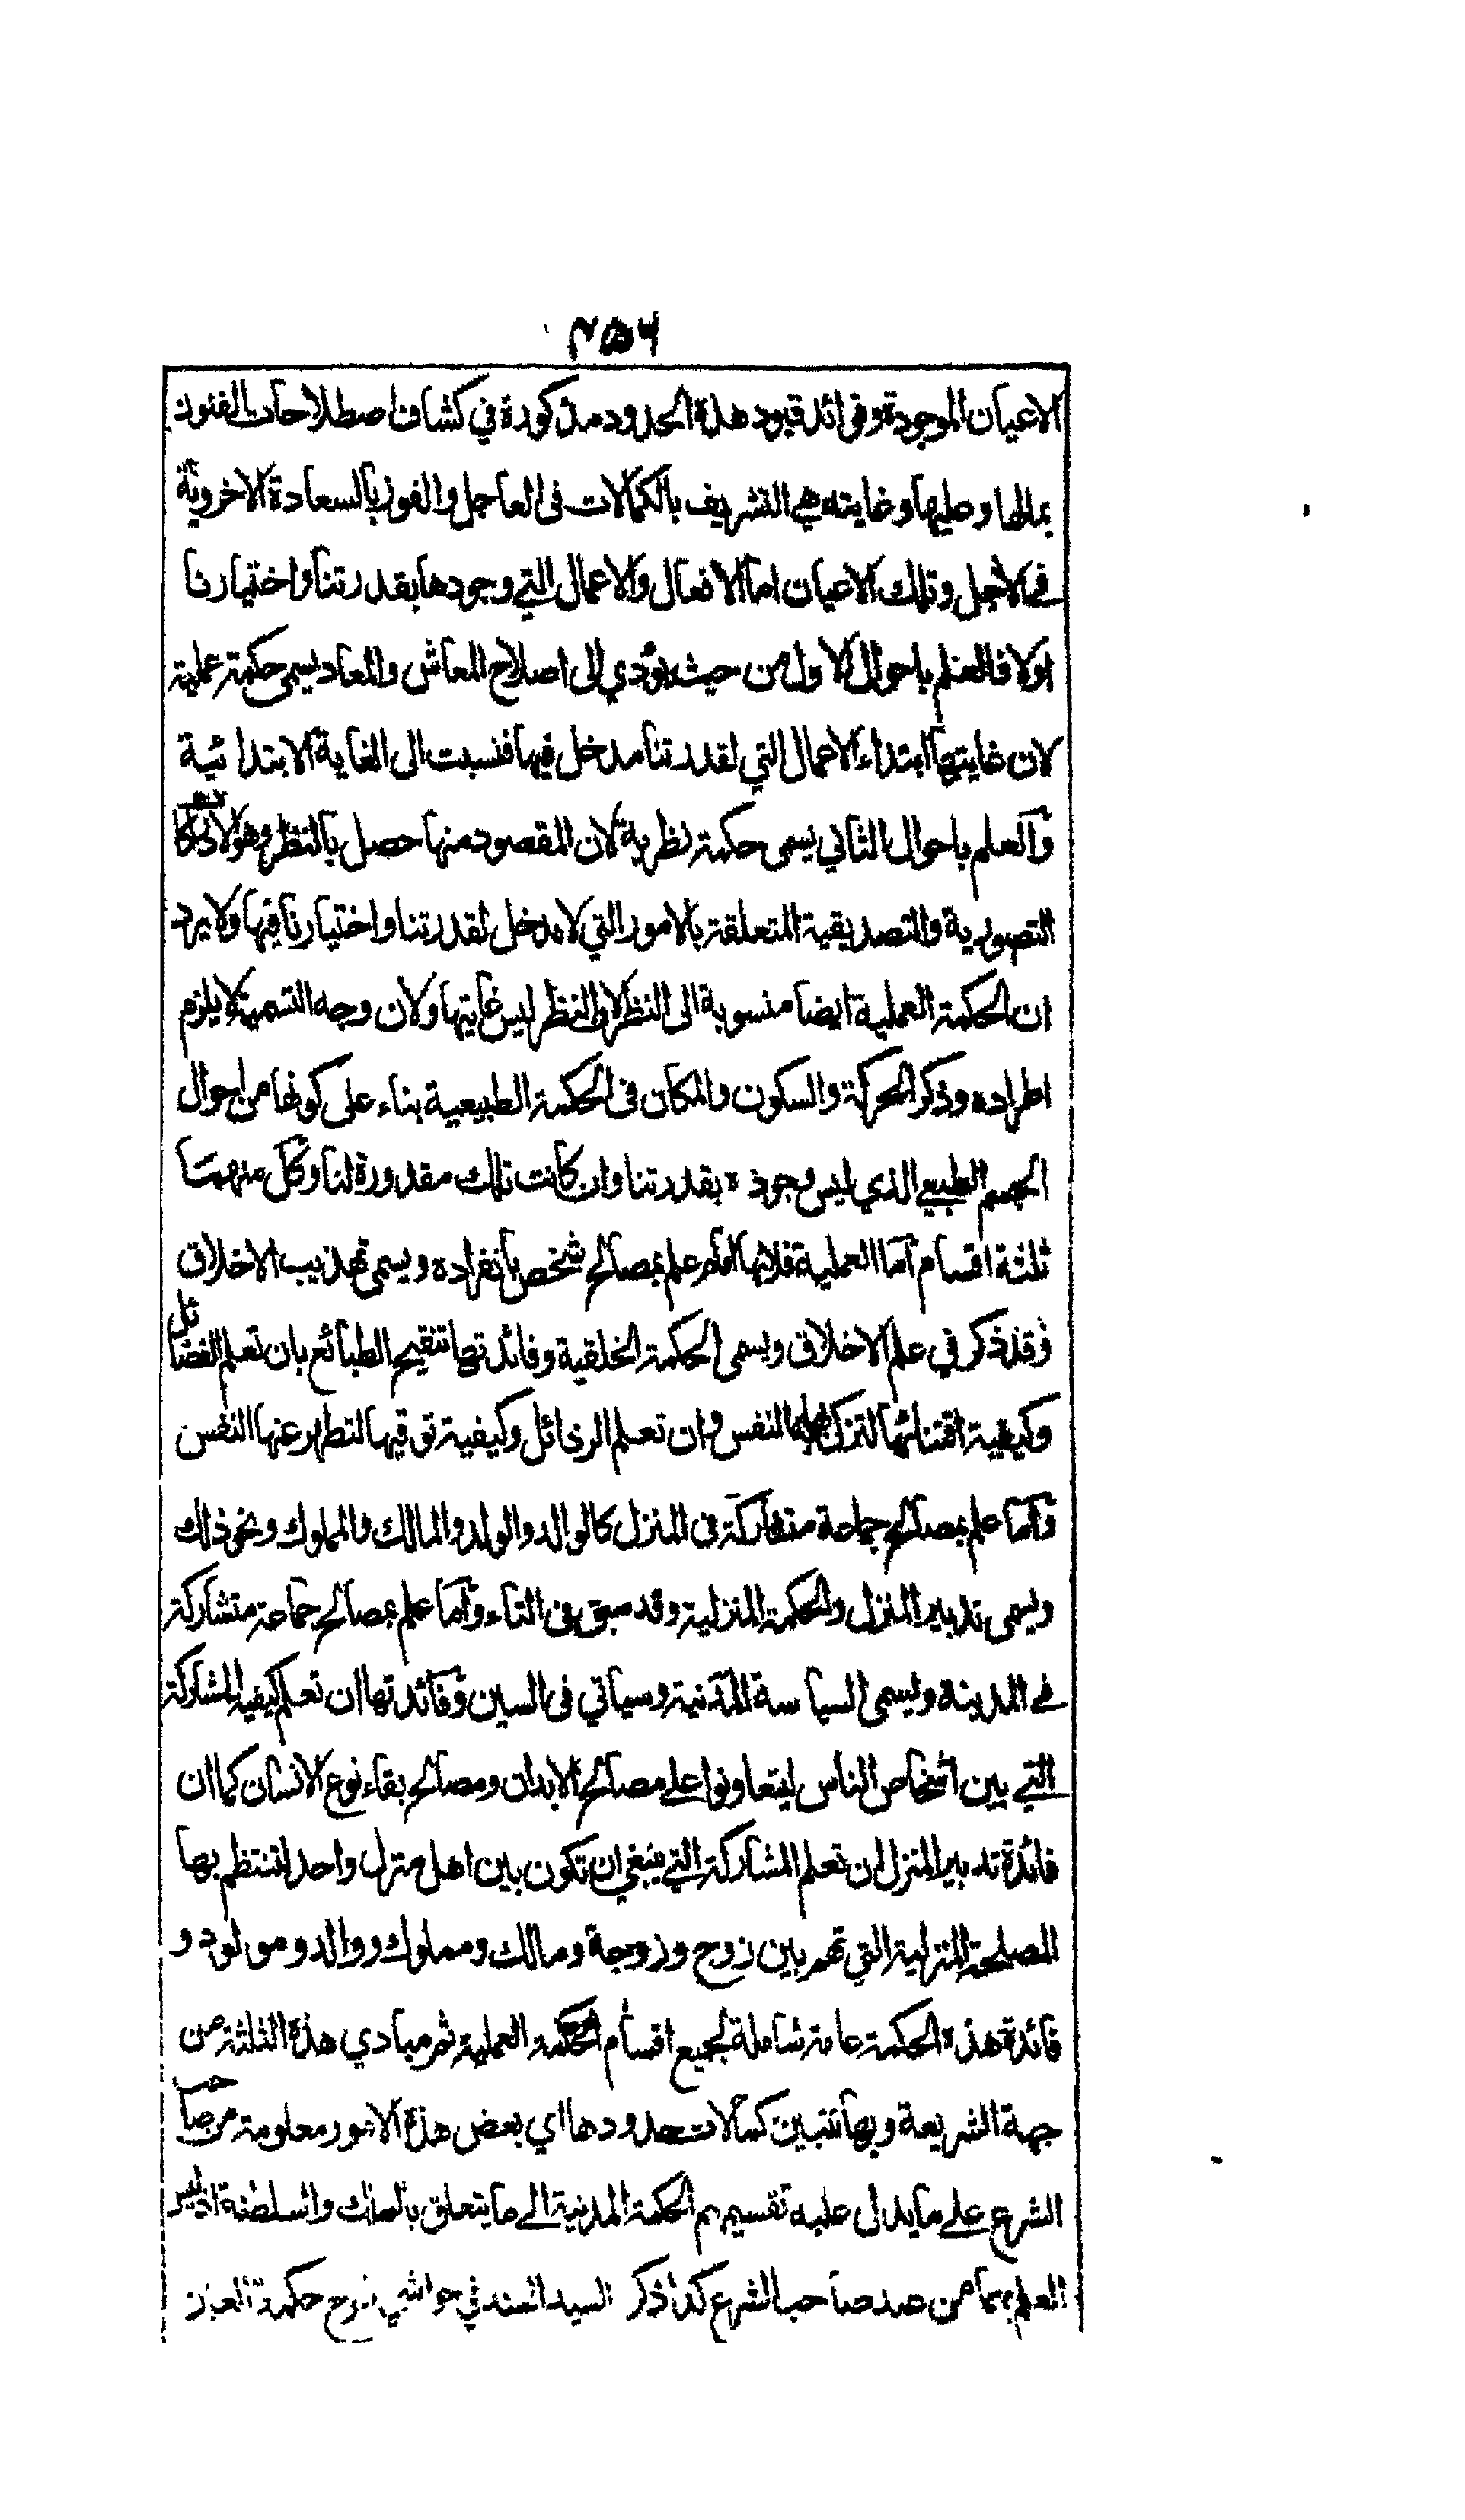 ۴۵۶
الاعيان الموجودة وفوائد قيود هذه الحدود مذكورة في كشاف اصطلاحات الفنون
بمالها وعليها وغايته هي التشريف بالكمالات فى العاجل والفوز بالسعادة الاخروية
فى الآجل وتلك الاعيان اما الافعال والاعمال التي وجودها بقدرتنا واختيارنا
اولا فالعلم باحوال الاول من حيث يؤدي الى اصلاح المعاش والمعاد يسمى حكمة عملية
لان غايتها ابتداء الاعمال التي لقدرتنا مدخل فيها فنسبت الى الغاية الابتدائية
والعلم باحوال الثاني يسمى حكمة نظرية لان المقصود منها حصل بالنظر وهو الادراكا
التصورية والتصديقية المتعلقة بالامور التي لا مدخل لقدرتنا واختيارنا فيها ولا يرد
ان الحكمة العملية ايضا منسوبة الى النظر لان النظر ليس غايتها ولان وجه التسمية لا يلزم
اطراده وذكر الحركة والسكون والمكان فى الحكمة الطبيعية بناء على كونها من احوال
الجسم الطبيعي الذي ليس وجوده بقدرتنا وان كانت تلك مقدورة لنا وكل منهما
ثلثة اقسام اما العملية فلانها اما علم بمصالح شخص بانفراده ويسمى تهذيب الاخلاق
وقد ذكر في علم الاخلاق ويسمى الحكمة الخلقية وفائدتها تنقيح الطبائع بان تعلم الفضائل
وكيفية اقتنائها لتزكى بها النفس وان تعلم الرذائل وكيفية توقيها لتطهر عنها النفس
واما علم بمصالح جماعة متشاركة فى المنزل كالوالد والولد والمالك والمملوك ونحو ذلك
ويسمى تدبير المنزل والحكمة المنزلية وقد سبق فى التاء واما علم بمصالح جماعة متشاركة
فى المدينة ويسمى السياسة المدنية وسياتي فى السين وفائدتها ان تعلم كيفية المشاركة
التي بين اشخاص الناس ليتعاونوا على مصالح الابدان ومصالح بقاء نوع الانسان كما ان
فائدة تدبير المنزل ان تعلم المشاركة التي ينبغي ان تكون بين اهل منزل واحد لتنتظم بها
المصلحة المنزلية التي تتم بين زوج وزوجة ومالك ومملوك ووالد ومولود و
فائدة هذه الحكمة عامة شاملة لجميع اقسام الحكمة العملية ثم مبادي هذه الثلثة من
جهة الشريعة وبها تتبين كمالات حدودها اي بعض هذه الامور معلومة من صاحب
الشرع على ما يدل عليه تقسيمهم الحكمة المدنية الى ما يتعلق بالملك والسلطنة اذ ليس
العلم بهما من عند صاحب الشرع كذا ذكر السيد السند في حواشي شرح حكمة العين